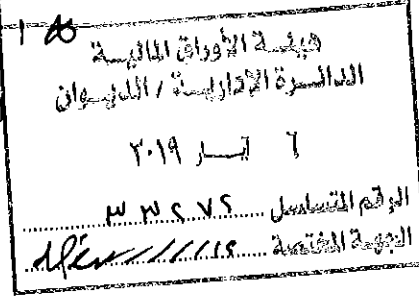 هيئـة الأوراق الماليـــة
الدائـــرة الإداريـــة / الديـــوان
٦ أيـــار ٢٠١٩
الرقم المتسلسل ٣٣٢٧٢
الجهة المختصة